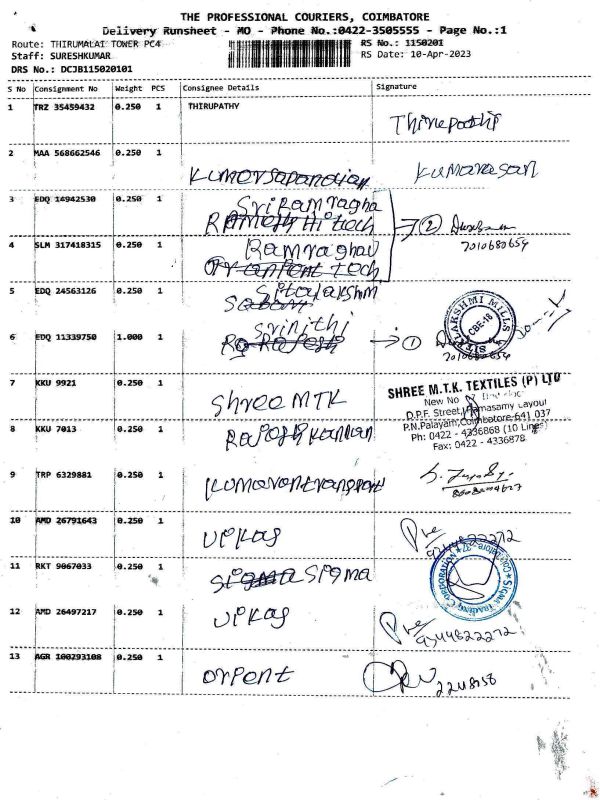 THE PROFESSIONAL COURIERS, COIMBATORE
Delivery Runsheet - MO - Phone No.:0422-3505555 - Page No.:1
Route: THIRUMALAI TOWER PC4
RS No.: 1150201
Staff: SURESHKUMAR
RS Date: 10-Apr-2023
DRS No.: DCJB115020101
S No Consignment No Weight PCS Consignee Details Signature
1 TRZ 35459432 0.250 1 THIRUPATHY
Thirupathi
2 MAA 568662546 0.250 1
Kumarasan
3 EDQ 14942530 0.250 1 Sriramragha
Hitech (2)
4 SLM 317418315 0.250 1 Ramraghav
7010680654
tech
5 EDQ 24563126 0.250 1 Sitalakshmi
LAKSHMI MILLS
CBE-18
Srinithi
6 EDQ 11339750 1.000 1 (1)
7010680654
7 KKU 9921 0.250 1 Shree MTK
SHREE M.T.K. TEXTILES (P) LTD
New No
D.P.F. Street, Ramasamy Layout
P.N.Palayam, Coimbatore-641 037
8 KKU 7013 0.250 1 Rajesh Kannan
Ph: 0422 - 4336868 (10 Lines)
Fax: 0422 - 4336878
9 TRP 6329881 0.250 1 Kumaran transport
10 AMD 26791643 0.250 1 Vikas
9244822272
11 RKT 9067033 0.250 1 Sigma Sigma
SIGMA TRADING CORPORATION
12 AMD 26497217 0.250 1 Vikas
9244822272
13 AGR 100293108 0.250 1 Orpent
2248258